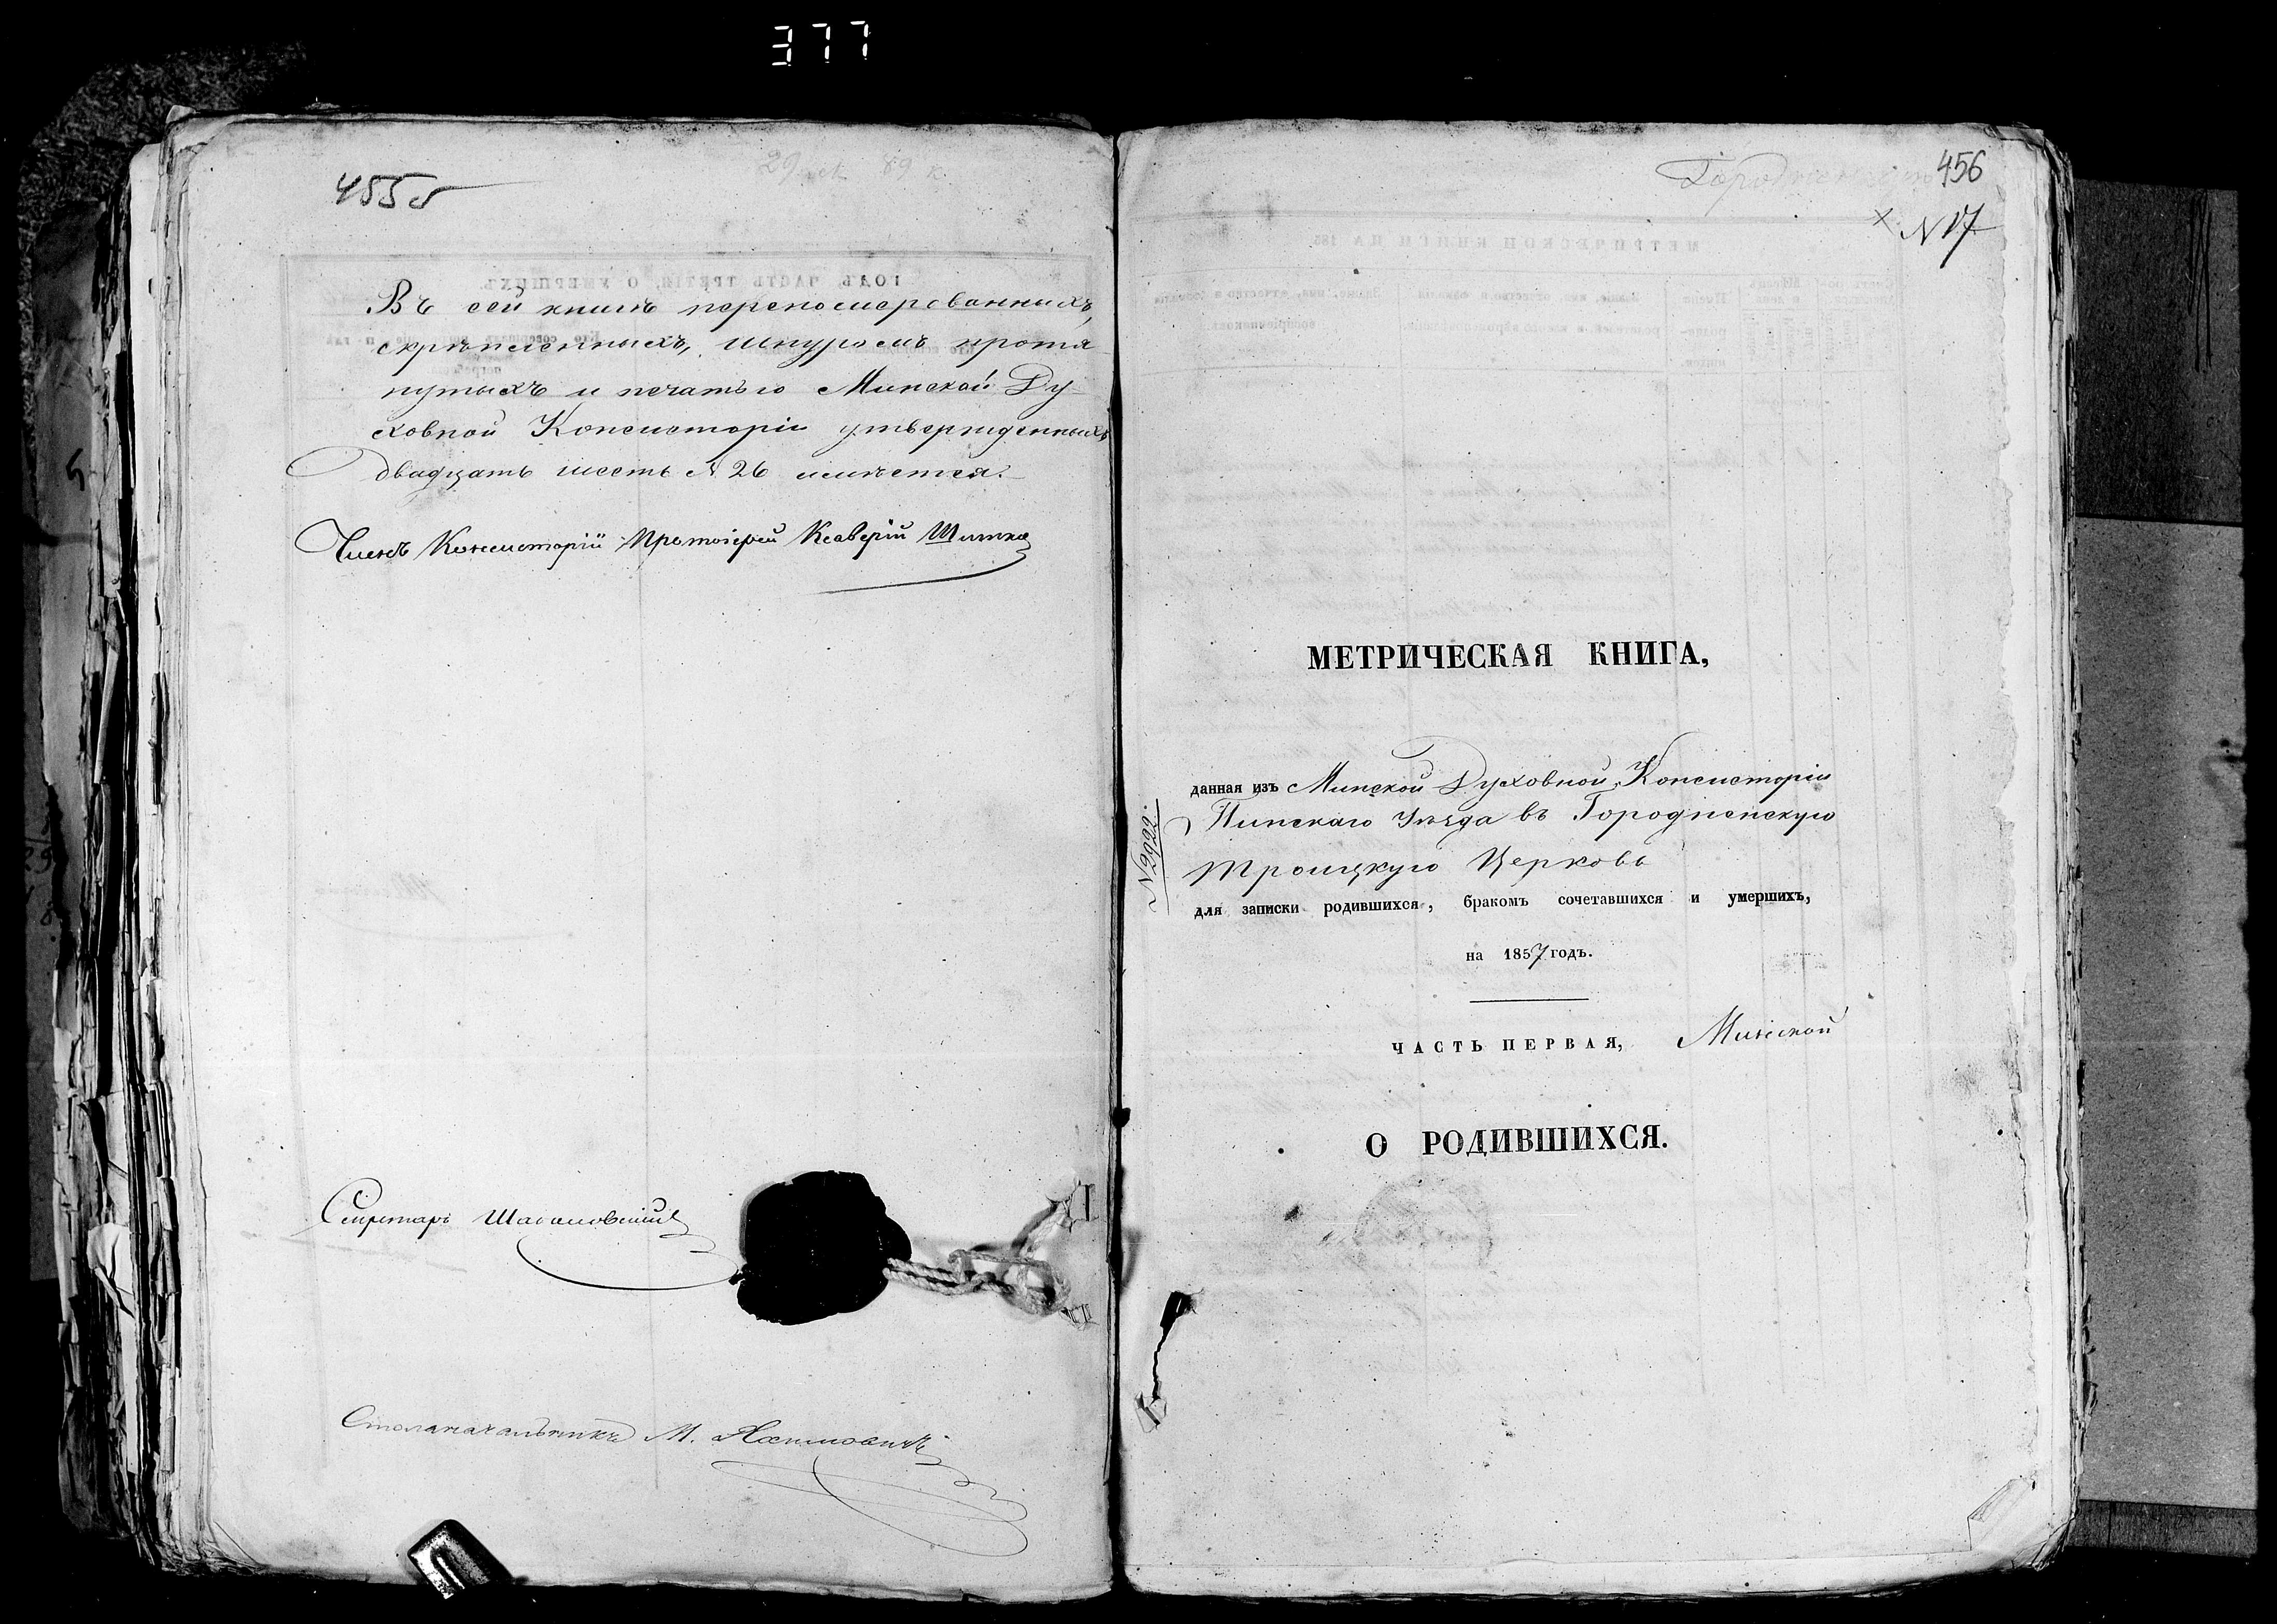 377
455 б
Въ сей книгѣ перено­мерованныхъ,
скрѣпленныхъ, шнуромъ протя
нутыхъ и печатью Минской Ду-
ховной Консисторіи утвержденныхъ
двадцать шесть N 26 имѣется.
Членъ Консисторіи Протоіерей Ксаверій
Секретарь
Столоначальникъ М.
456
N 17
МЕТРИЧЕСКАЯ КНИГА,
данная изъ Минской Духовной Консисторіи
Пинскаго Уѣзда въ Городненскую
Троицкую Церковь
N 2922.
для записки родившихся, бракомъ сочетавшихся и умершихъ,
на 1857 годъ.
ЧАСТЬ ПЕРВАЯ, Минской
О РОДИВШИХСЯ.